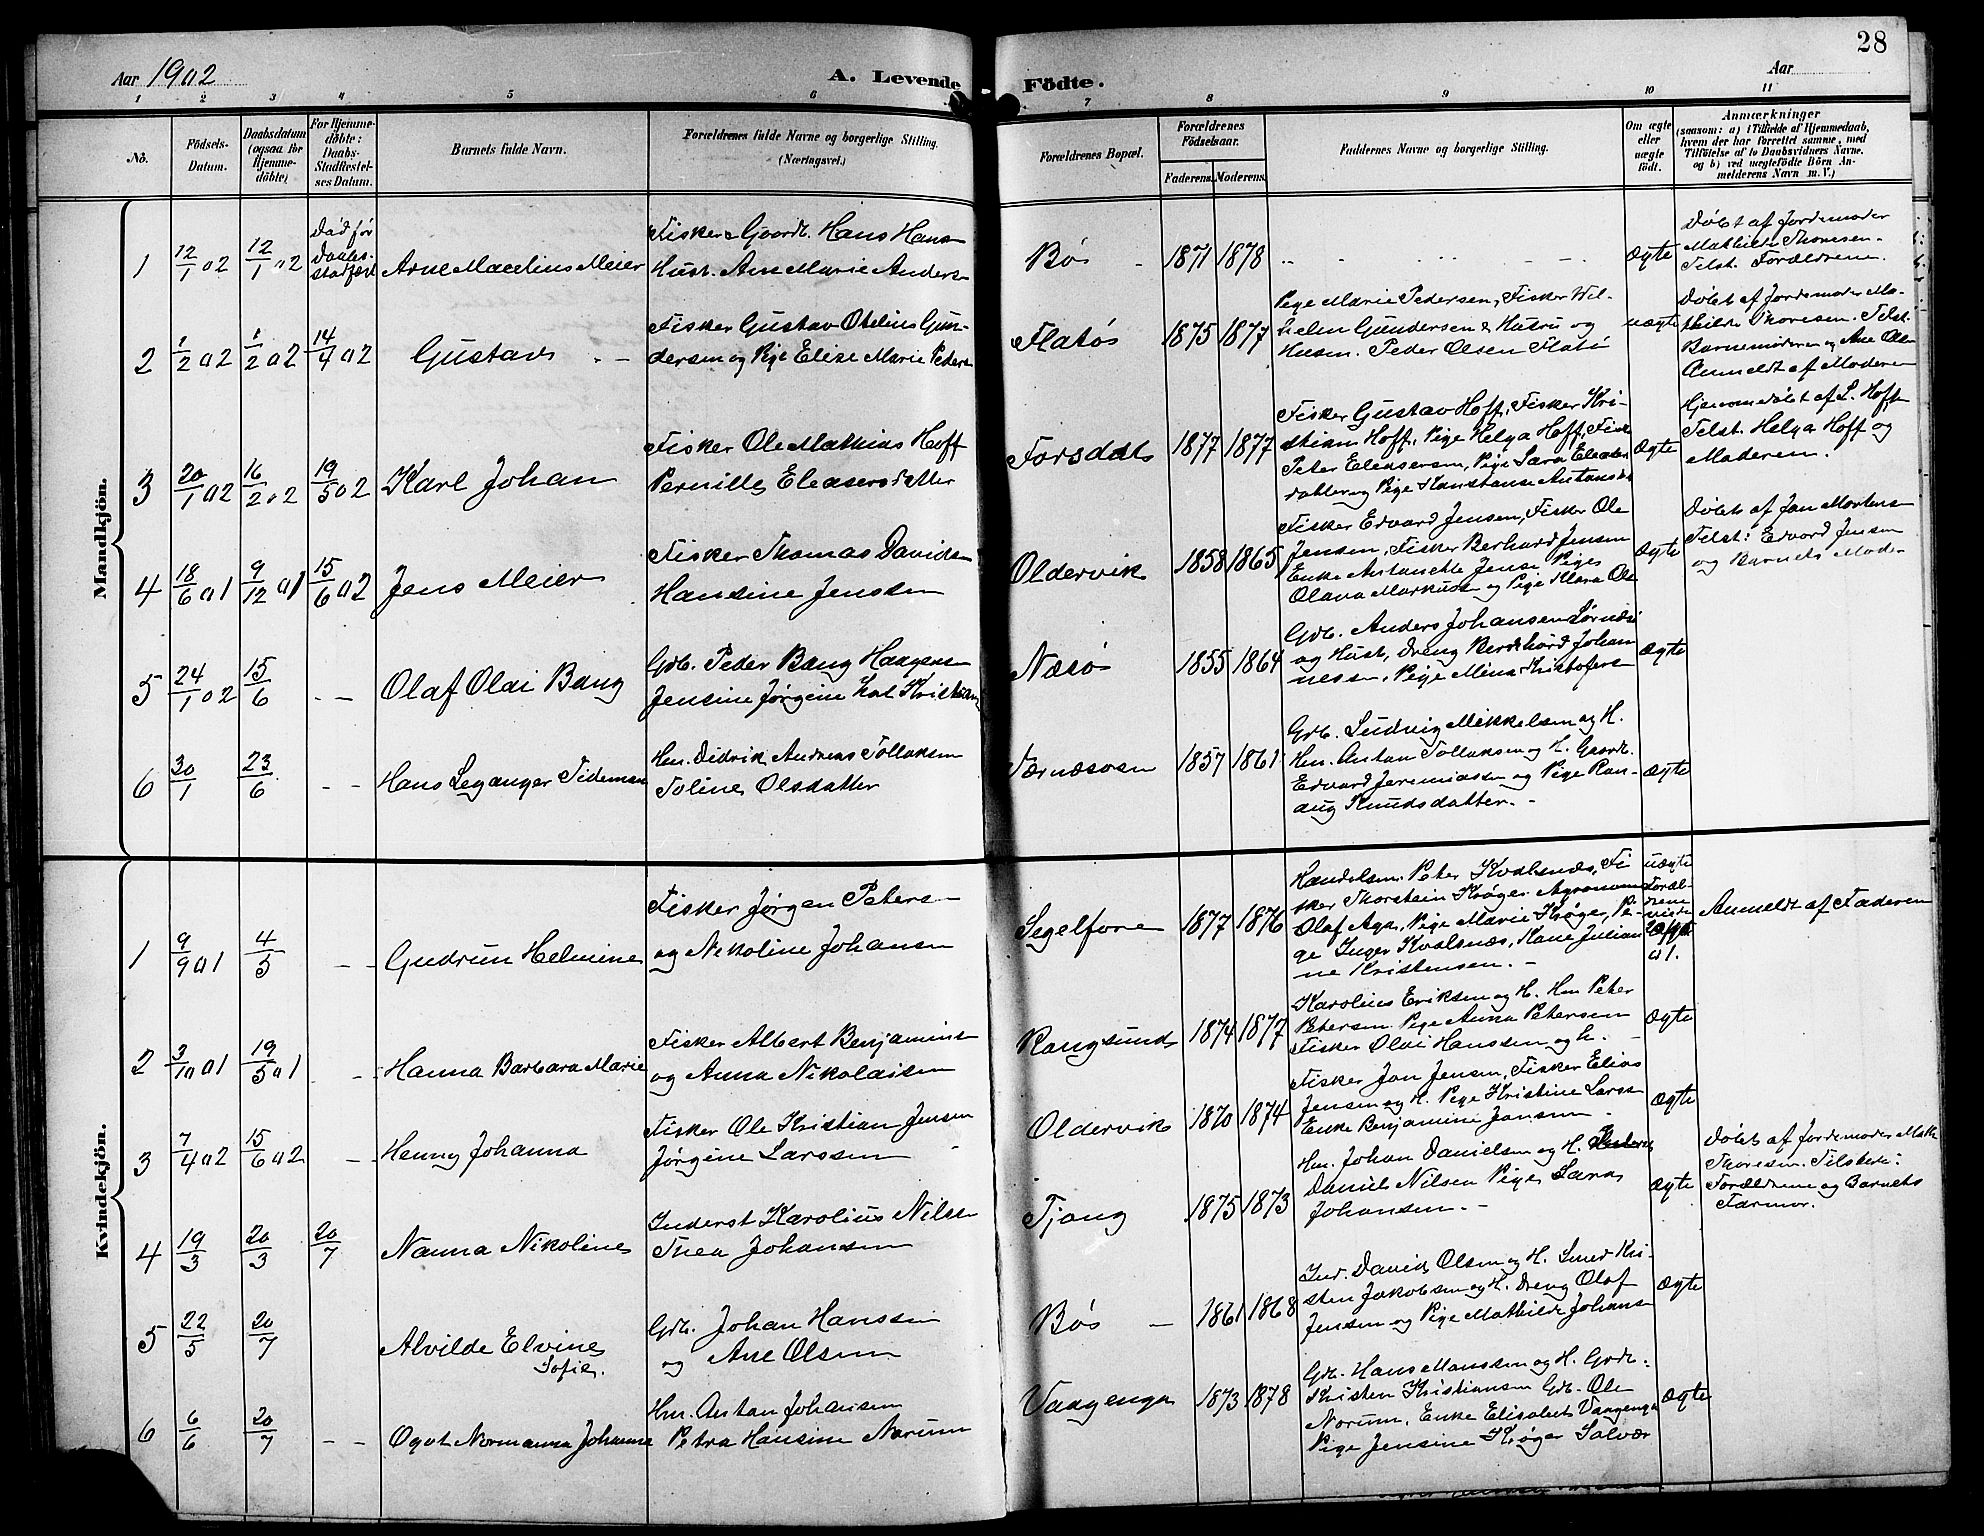 28
Aar 1902
A. Levende
Födte.
Aar
1 2 3 4 5 6 7 8 9 10 11
No.
Födsels-
Datum.
Daabsdatum
(ogsaa for
Hjemme-
döbte)
For Hjemme-
döbte:
Daabs-
Stadfæstel-
ses Datum.
Barnets fulde Navn.
Forældrenes fulde Navne og borgerlige Stilling.
(Næringsvei.)
Forældrenes Bopæl.
Forældrenes
Födselsaar.
Faderens. Moderens.
Faddernes Navne og borgerlige Stilling.
Om ægte
eller
uægte
født.
Anmærkninger
(saasom: a) i Tilfælde af Hjemmedaab,
hvem der har forrettet samme, med
Tilföielse af to Daabsvidners Navne.
og b) ved uægtefödte Börn An-
melderens Navn m. V.)
Mandkjön.
1
12/1 02
12/1 02
Død før
Daabs-
stadfæst
Arne Marelius Meier
Fisker & Gaardb. Hans Hans
Hust. Ane Marie Anders
Bø
1871 1878
ægte
Døbt af Jordemoder
Mathilde Thoresen.
Tilst. Forældrene.
2
1/2 02
1/2 02
14/4 02
Gustav
Fisker Gustav Otelius Gun-
dersen og Pige Elise Marie Peders
Flatø
1875 1877
Pige Marie Pedersen, Fisker Wil-
helm Gundersen & Hustru og
Husm. Peder Olsen Flatø
uægte
Døbt af Jordemoder Ma-
thilde Thoresen. Tilst.
Barnemoderen og Ane Ols
Anmeldt af Moderen
3
20/1 02
16/2 02
19/5 02
Karl Johan
Fisker Ole Mathias Hoff
Pernille Eleasersdatter
Forsdal
1877 1877
Fisker Gustav Hoff, Fisker Kri-
stian Hoff, Pige Helga Hoff, Fisk
Peter Eleasersen, Pige Sara Eleaser
datter og Pige Konstanse Antonsen
ægte
Hjemmedøbt af L. Hoff
Tilst. Helga Hoff og
Moderen.
4
18/6 01
9/12 01
15/6 02
Jens Meier
Fisker Thomas Davids
Hansine Jenssen
Oldervik
1858 1865
Fisker Edvard Jensen, Fisker Ole
Jensen, Fisker Berhard Jensen
Enke Antonette Jense Pige
Olava Markuss og Pige Klara Ols
ægte
Døbt af Jon Mortens
Tilst: Edvard Jensen
og Barnets Moder
5
24/1 02
15/6
- -
Olaf Olai Bang
Gdb. Peder Bang Haagens
Jensine Jørgine Kristian
Næsø
1855 1864
Gdb. Anders Johansen Sørnæs
og Hust, Dreng Berdhard Johan
nessen, Pige Mina Kristofers
ægte
6
30/1
23/6
- -
Hans Leganger Tideman
Hm. Didrik Andreas Tollaksen
Toline Olsdatter
Værnæsosen
1857 1861
Gdb. Ludvig Mikkelsen og H.
Hm. Anton Tollaksen og H. Gaardb.
Edvard Jeremiassen og Pige Ran-
aug Knudsdatter. -
ægte
Kvindekjön.
1
9/9 01
4/5
- -
Gudrun Helmine
Fisker Jørgen Peters -
og Nikoline Johansen
Segelfore
1877 1876
Handelsm. Peter Kvalsnæs, Fi
sker Thorstein Krøger Agronom
Olaf Aga, Pige Marie Krøge, Pi-
ge Inger Kvalsnæs, Kone Julian
ne Kristensen. -
uægte
Foræl-
drene
viede
01.
Anmeldt af Faderen
2
3/10 01
19/5 01
- -
Hanna Barbara Marie
Fisker Albert Benjamins
og Anna Nikolaisen
Rangsund
1874 1877
Karolius Eriksen og H. Hm Peter
Petersen Pige Anna Petersen
Fisker Olai Hanssen og h. -
ægte
3
7/4 02
15/6 02
-
Henny Johanna
Fisker Ole Kristian Jensen
Jørgine Larssen
Oldervik
1870 1874
Fisker Jon Jensen, Fisker Elias
Jensen og H. Pige Kristine Larss
Enke Benjamine Jansen
ægte
4
19/3
20/3
20/7
Nanna Nikoline
Inderst Karolius Nils
Thea Johansen
Tjong
1875 1873
Hm. Johan Danielsen og H.
Daniel Nilsen Pige Sara
Johansen. -
ægte
Døbt af Jordemoder Math
Thoresen. Tilstede:
Forældrene og Barnets
Farmor.
5
22/5
20/7
Alvilde Elvine
Sofie.
Gdb. Johan Hanssen
og Ane Olsen
Bø -
1861 1868
Ind. David Olsen og H. Smed Kri-
sten Jakobsen og H. Dreng Olaf
Jensen og Pige Mathilde Johans
ægte
6
6/6
20/7
- -
Ogot Normanna Johanna
Hm. Anton Johansen
Petra Hansine Norum
Vaagenga
1873 1878
Gdb. Hans Monssen og H. Grdb.
Kristen Kristiansen Gdb. Ole
Norum, Enke Elisabet Vaagenga
Pige Jensine Krøger Solvær
ægte